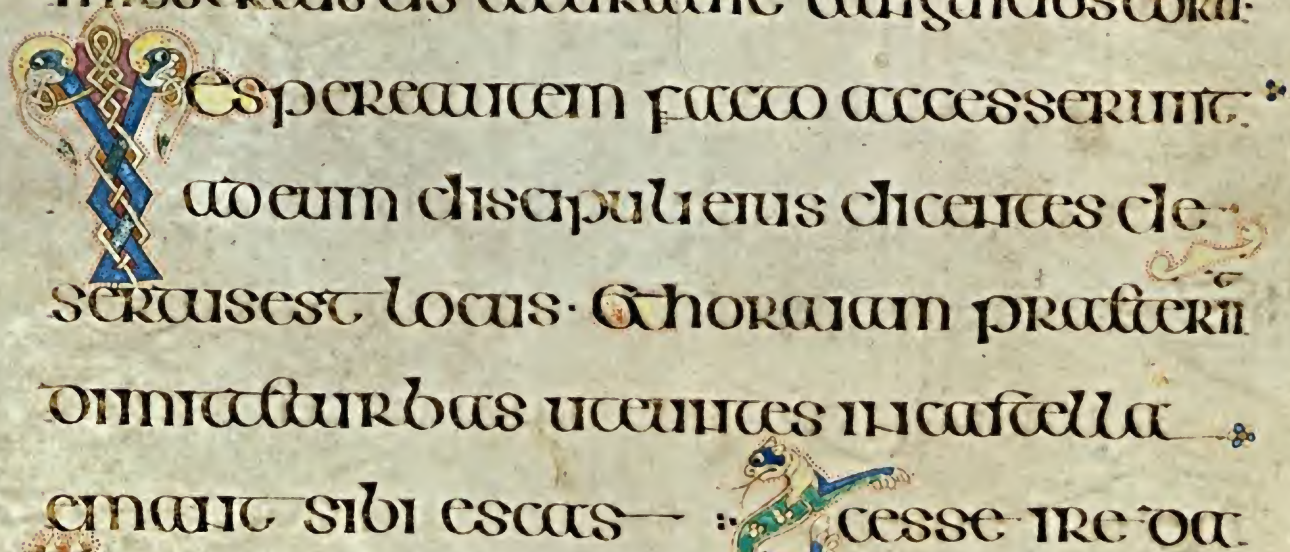 curauit languidos
Vespere autem facto accesserunt
ad eum discipuli eius dicentes de
sertus est locus · Et hora iam praeteriit
dimitte turbas ut euntes in castella
emant sibi escas cesse ire da